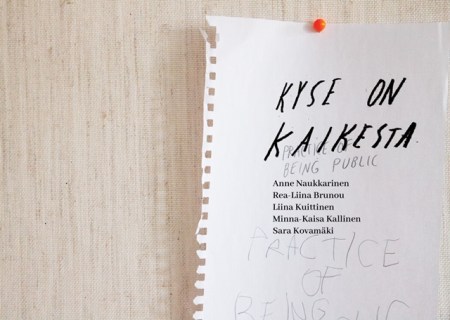 KYSE ON
KAIKESTA.
PRACTICE OF
BEING PUBLIC
Anne Naukkarinen
Rea-Liina Brunou
Liina Kuittinen
Minna-Kaisa Kallinen
Sara Kovamäki
PRACTICE
OF
BEING PUBLIC